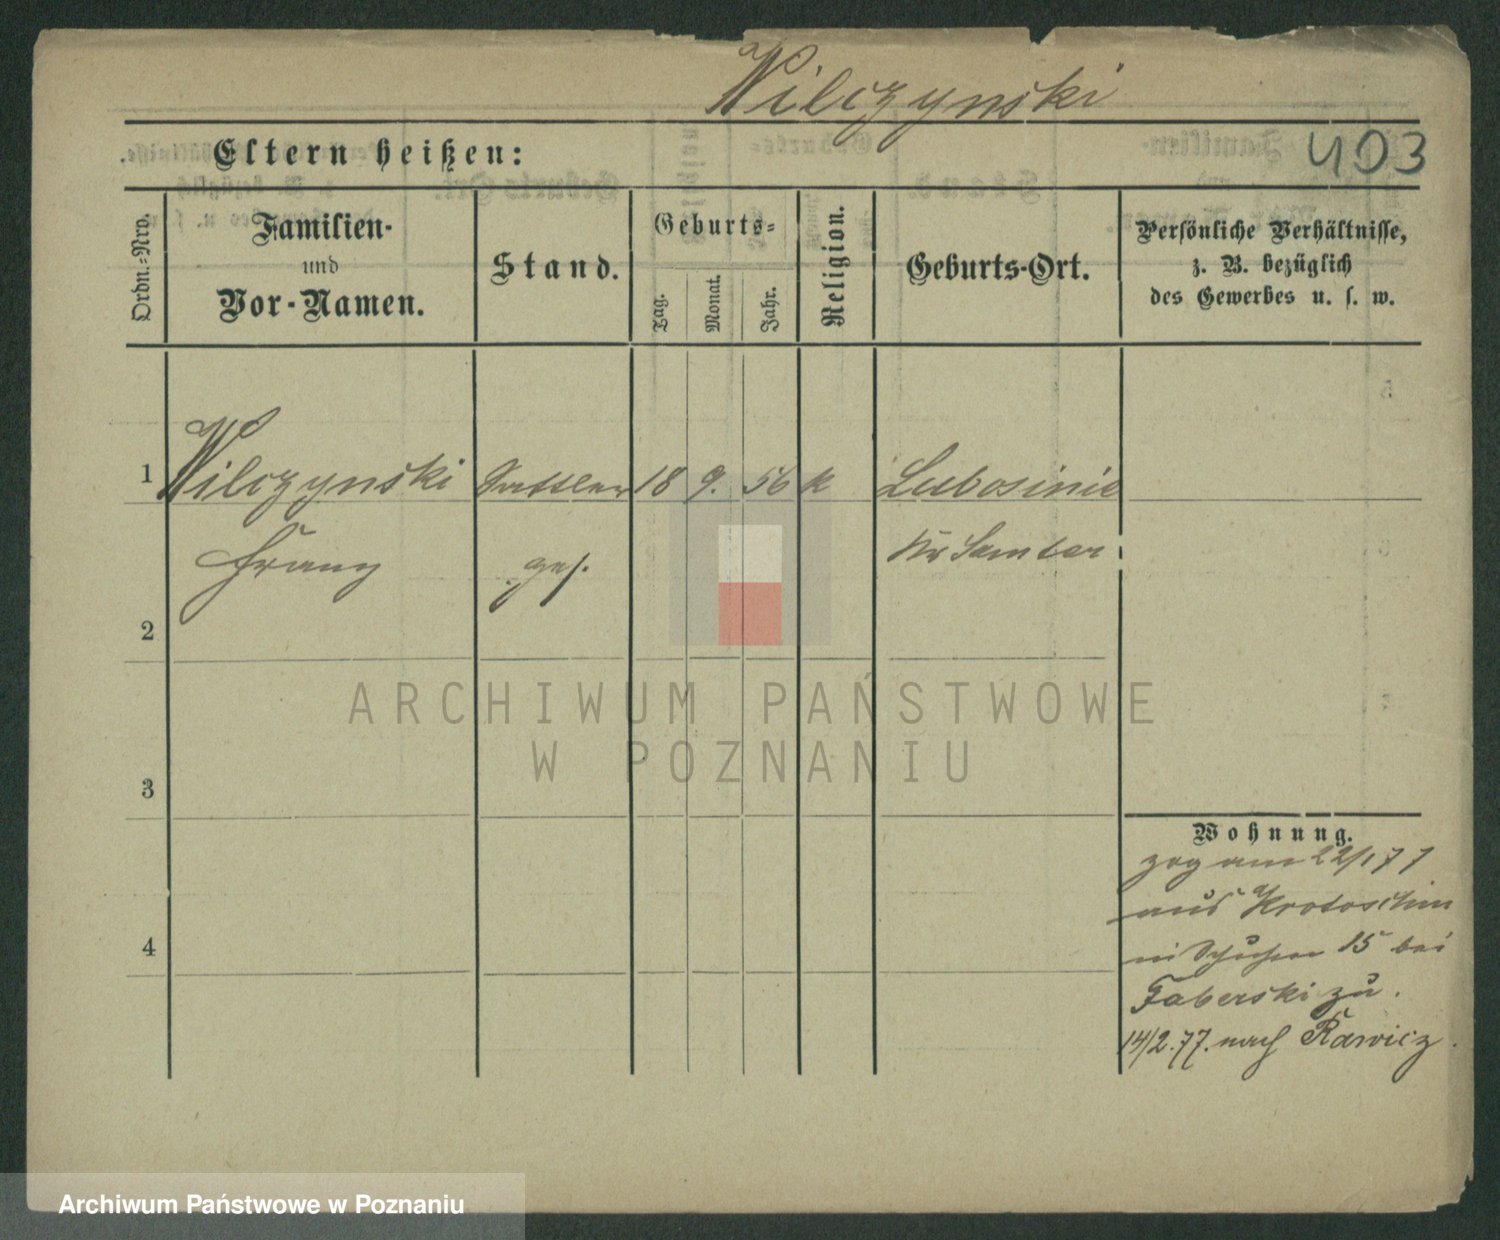 Wilczynski
Eltern heißen:
403
Ordn.-Nro.
Familien-
und
Vor-Namen.
Stand.
Geburts-
Tag.
Monat.
Jahr.
Religion.
Geburts-Ort.
Persönliche Verhältnisse,
z. B. bezüglich
des Gewerbes u. s. w.
1 Wilczynski Sattler 18 9. 56 k Lubosinie
Franz ges. Kr Samter
2
3
4
Wohnung.
zog am 22/1 77
aus Krotoschin
15 bei
Taberski zu.
14/2.77. nach Rawicz.
ARCHIWUM PAŃSTWOWE
W POZNANIU
Archiwum Państwowe w Poznaniu